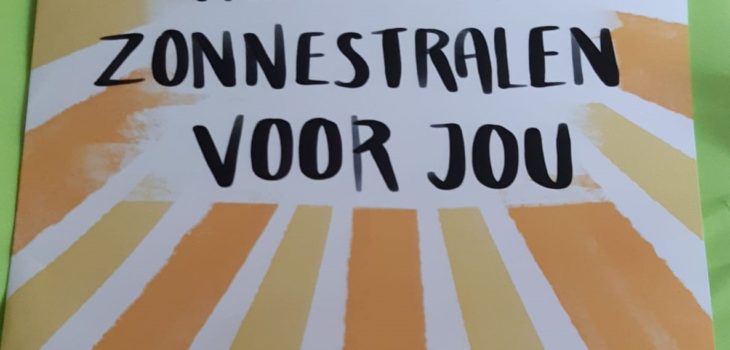 ZONNESTRALEN
VOOR JOU